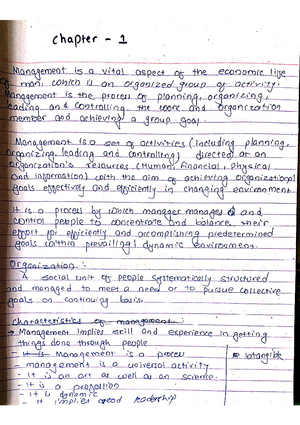 Chapter - 1
Management is a vital aspect of the economic life
of man, which is an organized group of activity.
Management is the process of planning, organizing,
leading and controlling the work and organization
member and achieving a group goal
Management is a set of activities (including planning,
organizing, leading and controlling) directed at an
organization's resources (Human, financial, physical
and information) with the aim of achieving organizational
goals effectively and efficiently in changing environment
It is a process by which manages and
control people to concentrate and balance their
effort for efficiently and accomplishing predetermined
goals within prevailing / dynamic environment.
Organization :
A social unit of people systematically structured
and managed to meet a need or to pursue collective
goals on continuing basis.
Characteristics of management :
→ Management implies skill and experience in getting
things done through people
- It is Management is a process
Intangible
- management is a universal activity
- It is an art as well as an science.
- It is a profession
- it is dynamic
- It implies good leadership